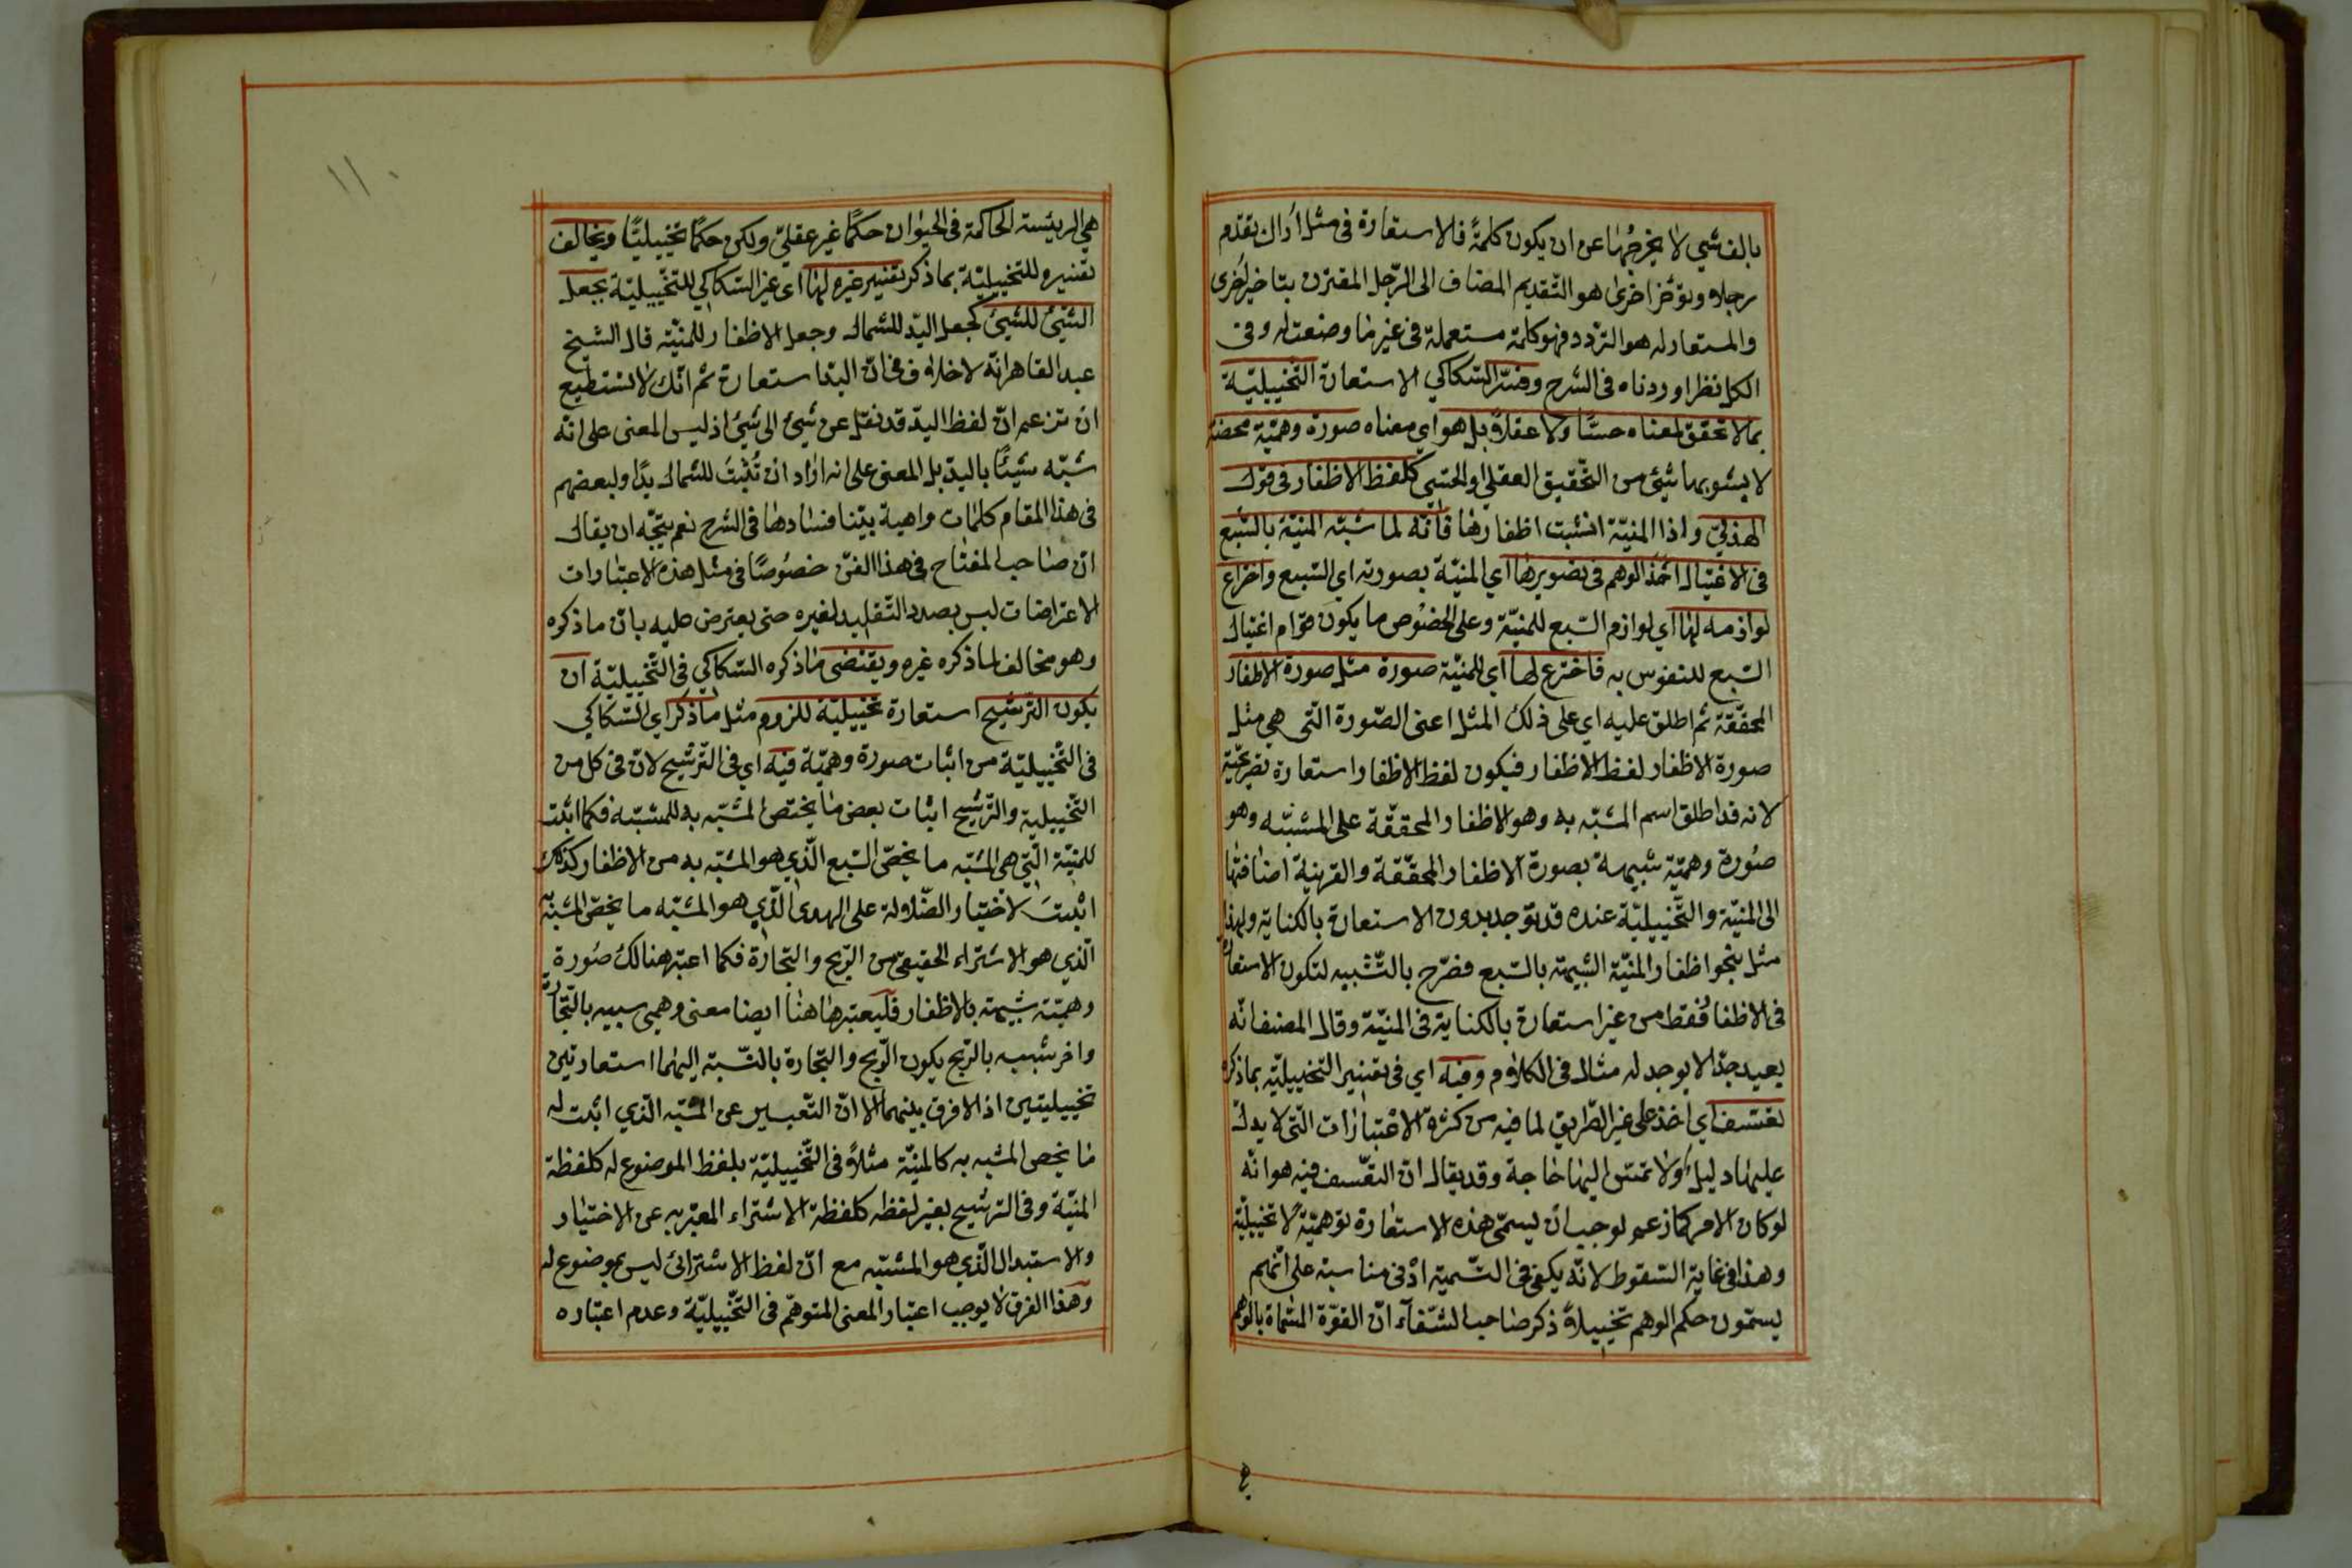 بالف شيي لا يخرجُها عن ان يكون كلمةً فالاستعارة فى مثل اراك تقدم
رجلا وتؤخر اخرى هو التّقديم المضاف الى الرّجل المقترن بتاخير اخرى
والمستعار له هو التردد فهو كلمة مستعملة فى غير ما وضعت له وفى
الكل نظر اوردناه فى الشرح وفسّر السّكاكي الاستعارة التّخييليّة
بما لا تحقق لمعناه حسّا ولا عقلاً بل هو اي معناه صورة وهميّة محضة
لا يشوبها شيئ من التّحقيق العقلي او الحسّي كلفظ الاظفار فى قول
الهذليّ واذا المنيّة انشبت اظفارها فانّه لما شبّه المنيّة بالسّبع
فى الاغتيال اخذ الوهم فى تصويرها اي المنيّة بصورته اي السّبع واخراع
لوازمه لها اي لوازم السّبع للمنيّة وعلى الخصُوص ما يكون قوام اغتيال
السّبع للنفوس به فاخترع لها اي للمنيّة صورة مثل صورة الاظفار
المحقّقة ثم اطلق عليه اي على ذلك المثل اعنى الصّورة الّتى هي مثل
صورة الاظفار لفظ الاظفار فيكون لفظ الاظفار استعارة تصريحيّة
لانه قد اطلق اسم المشبّه به وهو الاظفار المحقّقة على المشبّه وهو
صُورة وهميّة شبيهة بصورة الاظفار المحقّقة والقرينة اضافتها
الى المنيّة والتّخييليّة عنده قد توجد بدون الاستعارة بالكناية ولهذا
مثل بنحو اظفار المنيّة الشبيهة بالسّبع فصرّح بالتّشبيه لتكون الاستعارة
فى الاظفار فقط من غير استعارة بالكناية فى المنيّة وقال المصنف انّه
بعيد جدّا لا يوجد له مثال فى الكلام وفيه اي فى تفسير التّخييليّة بما ذكره
تعسّف اي اخذ على غير الطّريق لما فيه من كثرة الاعتبارات الّتى لا يدلّ
عليها دليل ولا تمسّ اليها حاجة وقد يقال انّ التعسّف فيه هو انّه
لو كان الامر كما زعم لوجب ان يسمّى هذه الاستعارة توهميّة لا تخييليّة
وهذا فى غاية السّقوط لانّه يكفى فى التّسمية ادنى مناسبة على انّهم
يسمّون حكم الوهم تخييلاً ذكر صاحب الشّفاء انّ القوّة المسمّاة بالوهم
١١٠
هي الرئيسة الحاكمة فى الحيوان حكمًا غير عقليّ ولكن حكمًا تخييليّا ويخالف
تفسيره للتخييليّة بما ذكر تفسير غيره لها اى غير السّكاكي للتخييليّة بجعل
الشّيئ للشّيئ كجعل اليد للشمال وجعل الاظفار للمنيّة قال الشيخ
عبد القاهر انّه لا خلاف فى انّ اليد استعارة ثم انّك لا تستطيع
ان تزعم انّ لفظ اليد قد نقل عن شيئ الى شيئ اذ ليس المعنى على انّه
شبّه شيئًا باليد بل المعنى على انه اراد ان تُثبت للشمال يدًا ولبعضهم
فى هذا المقام كلمات واهية بيّنا فسادها فى الشرح نعم يتجّه ان يقال
انّ صاحب المفتاح فى هذا الفنّ خصُوصًا فى مثل هذه الاعتبارات
الاعتراضات ليس بصدد التّقليد لغيره حتى يعترض عليه بانّ ما ذكره
وهو مخالف لما ذكره غيره ويقتضى ما ذكره السّكاكي فى التّخييليّة ان
يكون الترشيح استعارة تخييليّة للزوم مثل ما ذكر اي السّكاكي
فى التّخييليّة من اثبات صورة وهميّة فيه اي فى التّرشيح لانّ فى كل من
التّخييلية والتّرشيح اثبات بعض ما يختصّ المشبّه به للمشبّه فكما اثبت
للمنيّة الّتي هى المشبّه ما يخصّ السّبع الّذي هو المشبّه به من الاظفار كذلك
اثبت لاختيار الضّلالة على الهدى الّذي هو المشبّه ما يخصّ المشبّه به
الّذي هو الاشتراء الحقيقيّ من الرّبح والتجارة فكما اعتبر هنالك صُورة
وهميّة شبيهة بالاظفار فليعتبر هاهنا ايضا معنى وهمي شبيه بالتّجارة
واخر شبيه بالرّبح يكون الرّبح والتجارة بالنّسبة اليهما استعارتين
تخييليتين اذ لا فرق بينهما الا انّ التّعبير عن المشبّه الّذي اثبت له
ما يخص المشبه به كالمنيّة مثلاً فى التّخييليّة بلفظ الموضوع له كلفظة
المنيّة وفى الترشيح بغير لفظه كلفظة الاشتراء المعبّر به عن الاختيار
والاستبدال الّذي هو المشبّه مع انّ لفظ الاشترائ ليس بموضوع له
وهذا الفرق لا يوجب اعتبار المعنى المتوهّم فى التّخييليّة وعدم اعتباره